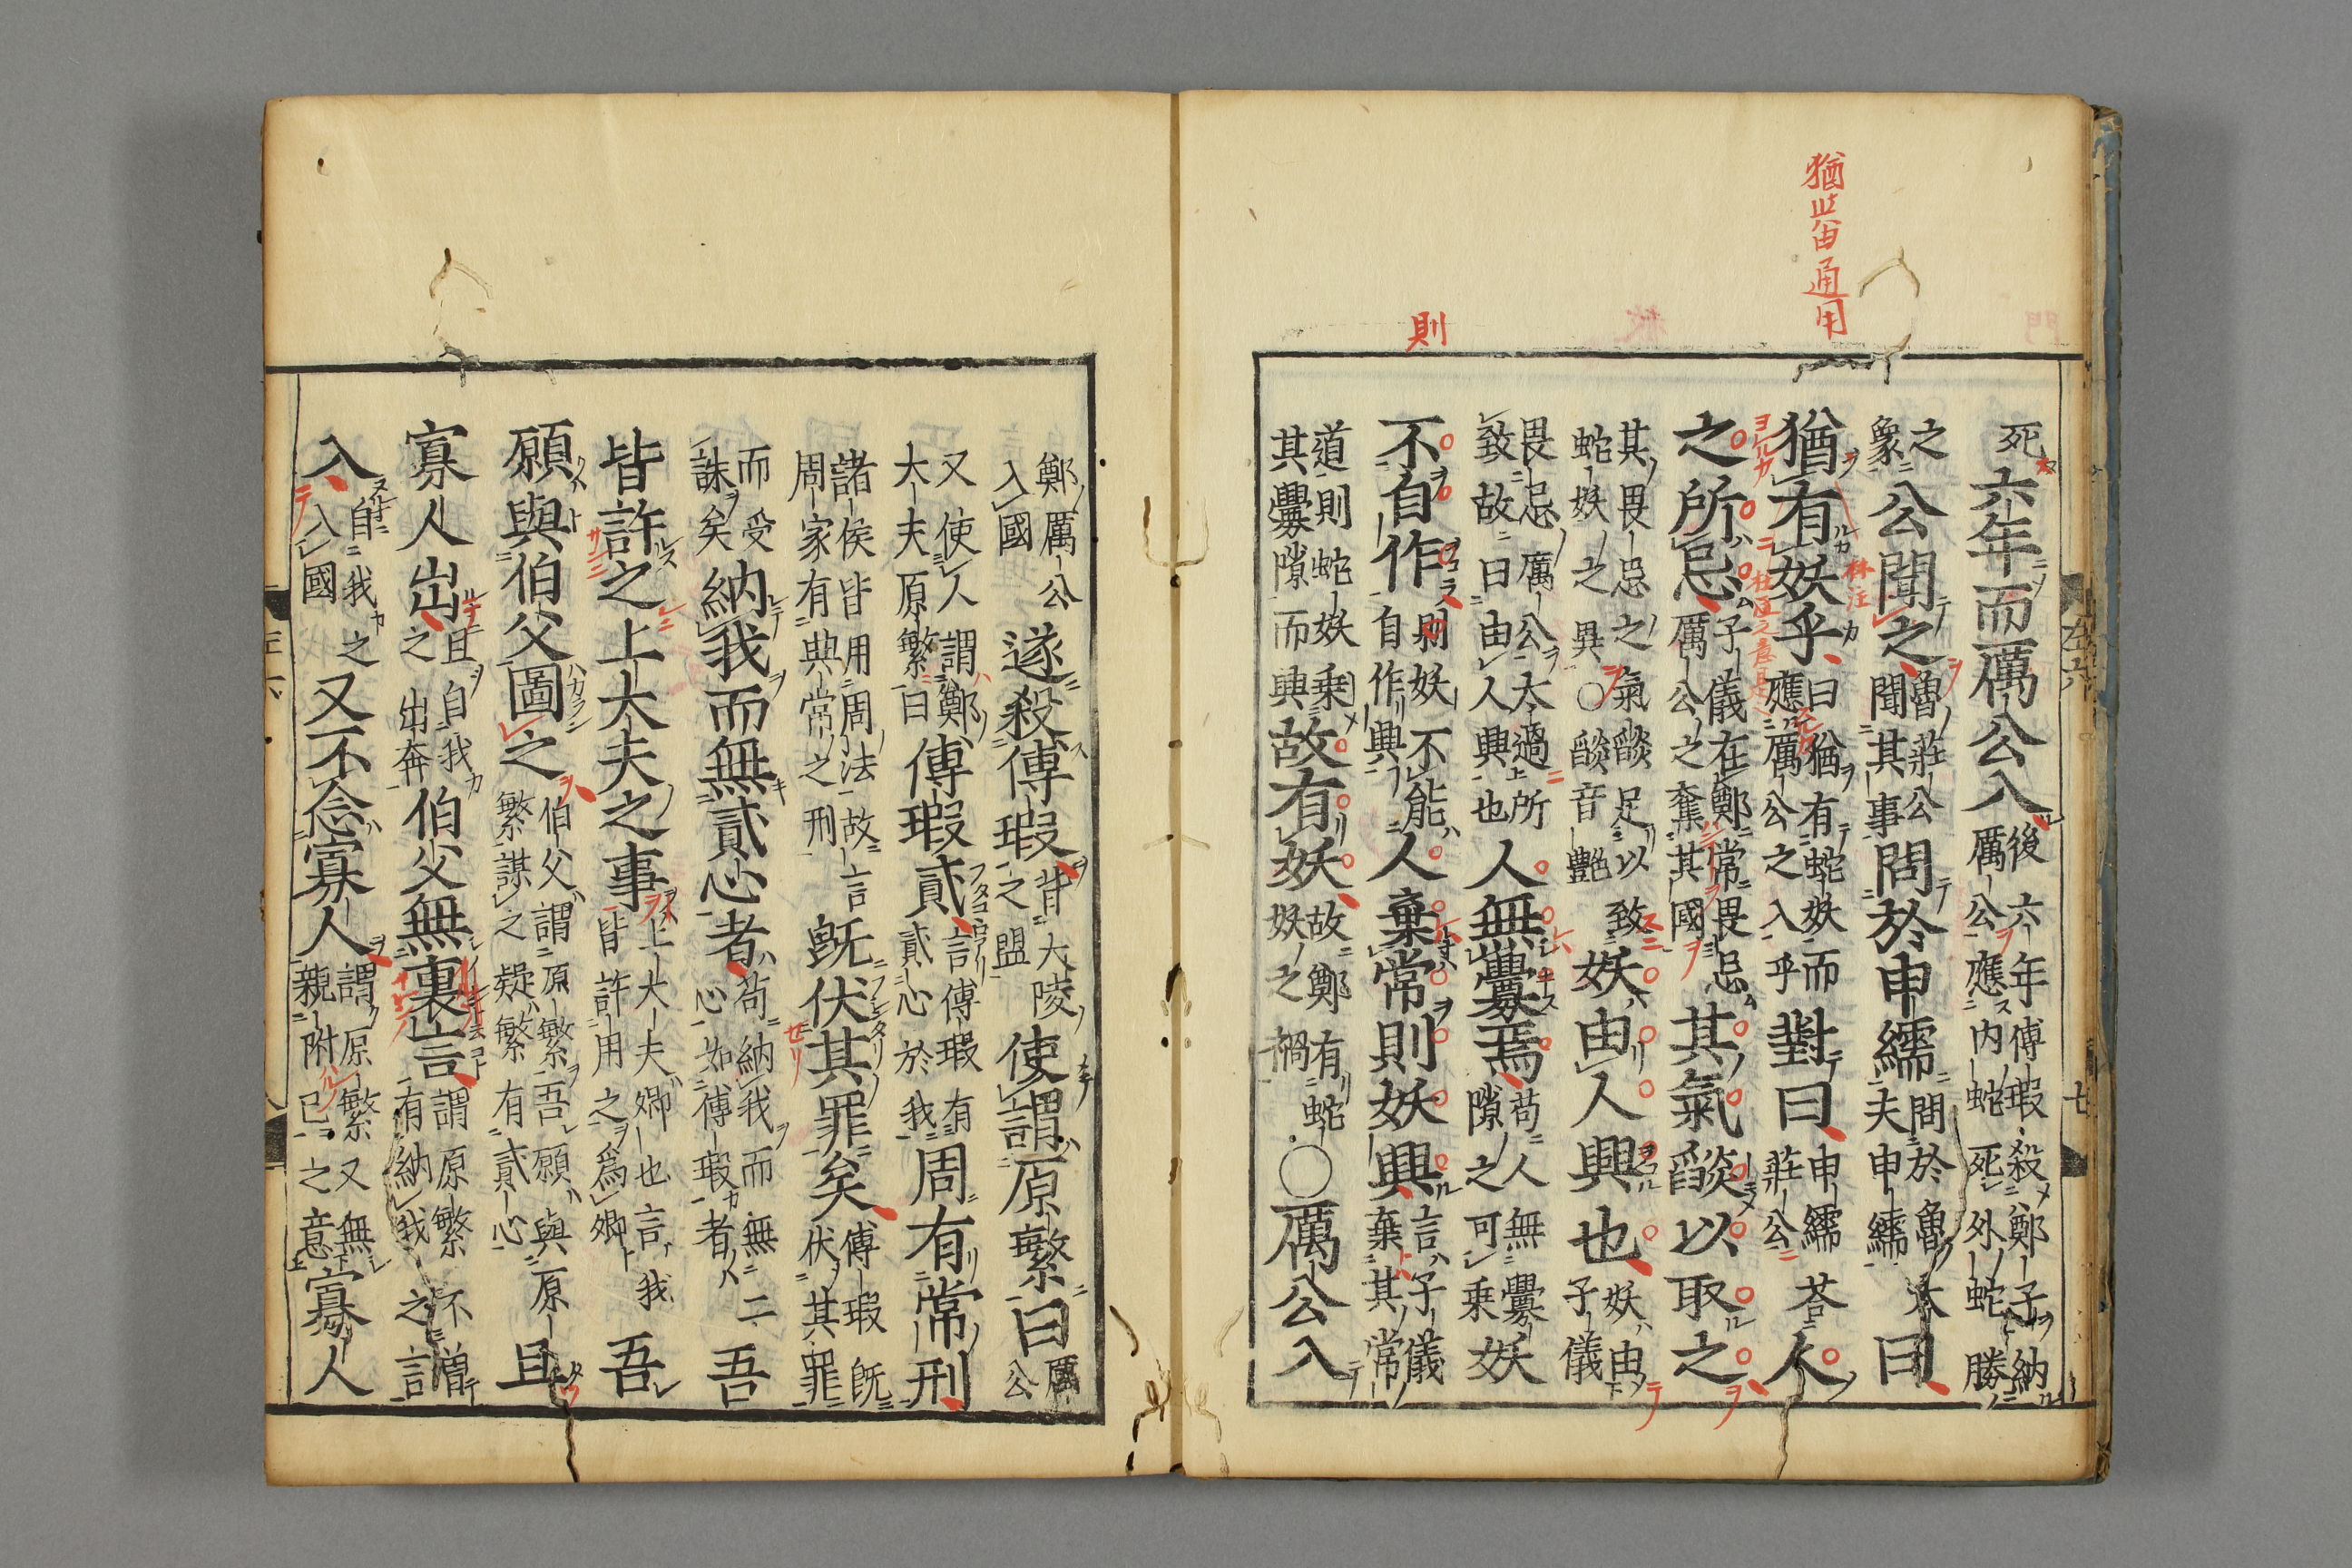 則
死六年而厲公入後六年傅瑕殺鄭子納厲公應内蛇死外蛇勝
之象公聞之魯莊公聞其事問於申繻問於魯大夫申繻曰
猶有妖乎曰猶有蛇妖而應厲公之入乎對曰申繻荅莊公人
之所忌子儀在鄭常畏忌厲公之奪其國其氣燄以取之
其畏忌之氣燄足以致蛇妖之異○燄音艷妖由人興也妖由子儀
畏忌厲公太過所致故曰由人興也人無釁焉苟人無釁隙之可乗妖
不自作則妖不能自作興人棄常則妖興言子儀棄其常
道則蛇妖乗其釁隙而興故有妖故鄭有蛇妖之禍○厲公入
鄭厲公入國遂殺傅瑕背大陵之盟使謂原繁曰厲公
又使人謂鄭大夫原繁曰傅瑕貳言傅瑕有貳心於我周有常刑
諸侯皆用周法故言周家有典常之刑既伏其罪矣傅瑕既伏其罪
而受誅矣納我而無貳心者苟納我而無二心如傅瑕者吾
皆許之上大夫之事上大夫卿也言我皆許用之爲卿吾
願與伯父圖之伯父謂原繁吾願與原繁謀之疑繁有貳心且
寡人出且自我之出奔伯父無裏言謂原繁不曽有納我之言
入自我之入國又不念寡人謂原繁又無親附已之意寡人